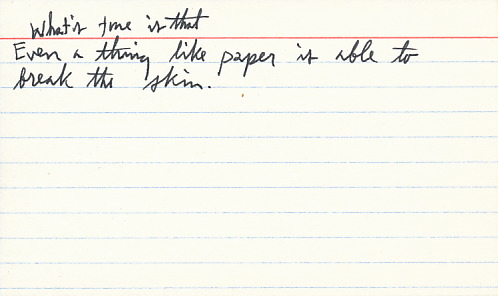 What's true is that
Even a thing like paper is able to
break the skin.